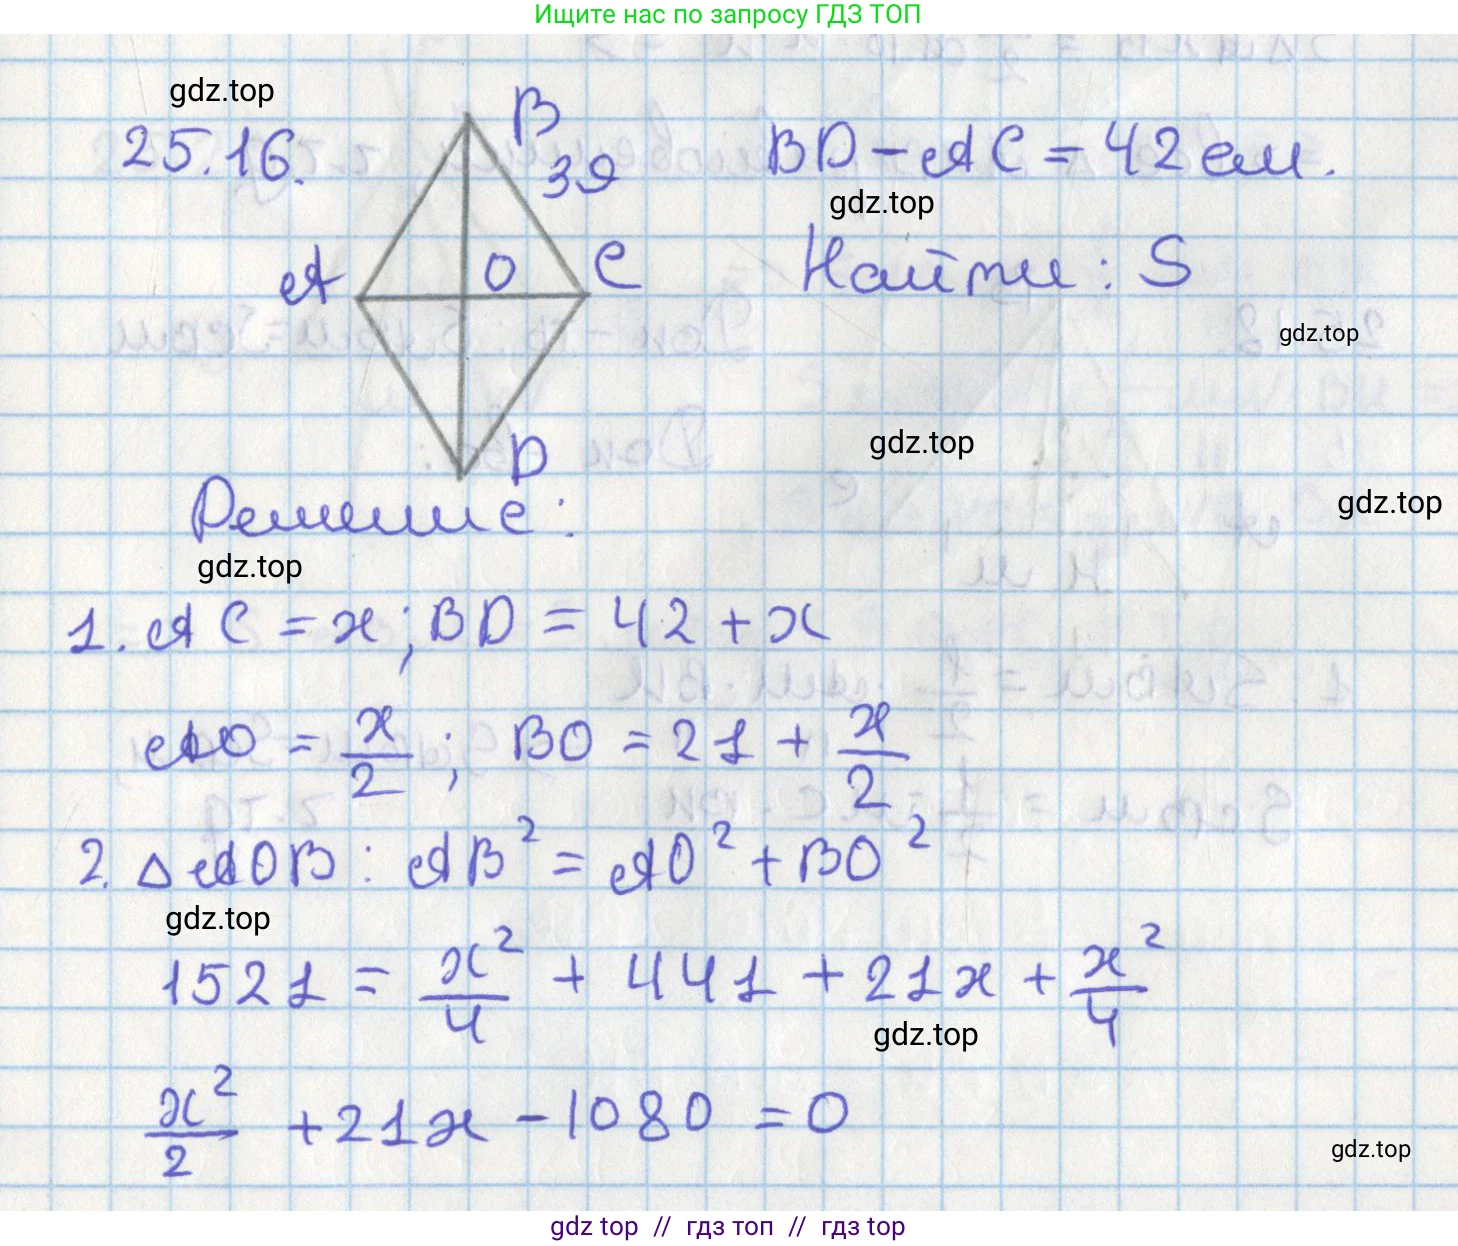 Ищите нас по запросу ГДЗ ТОП
gdz.top
25.16.
B
39
A
O
C
D
BD - AC = 42 см.
gdz.top
Найти: S
gdz.top
gdz.top
gdz.top
Решение:
gdz.top
1. AC = x; BD = 42 + x
AO = x/2; BO = 21 + x/2
2. △AOB: AB² = AO² + BO²
gdz.top
1521 = x²/4 + 441 + 21x + x²/4
gdz.top
x²/2 + 21x - 1080 = 0
gdz.top
gdz top // гдз топ // gdz top